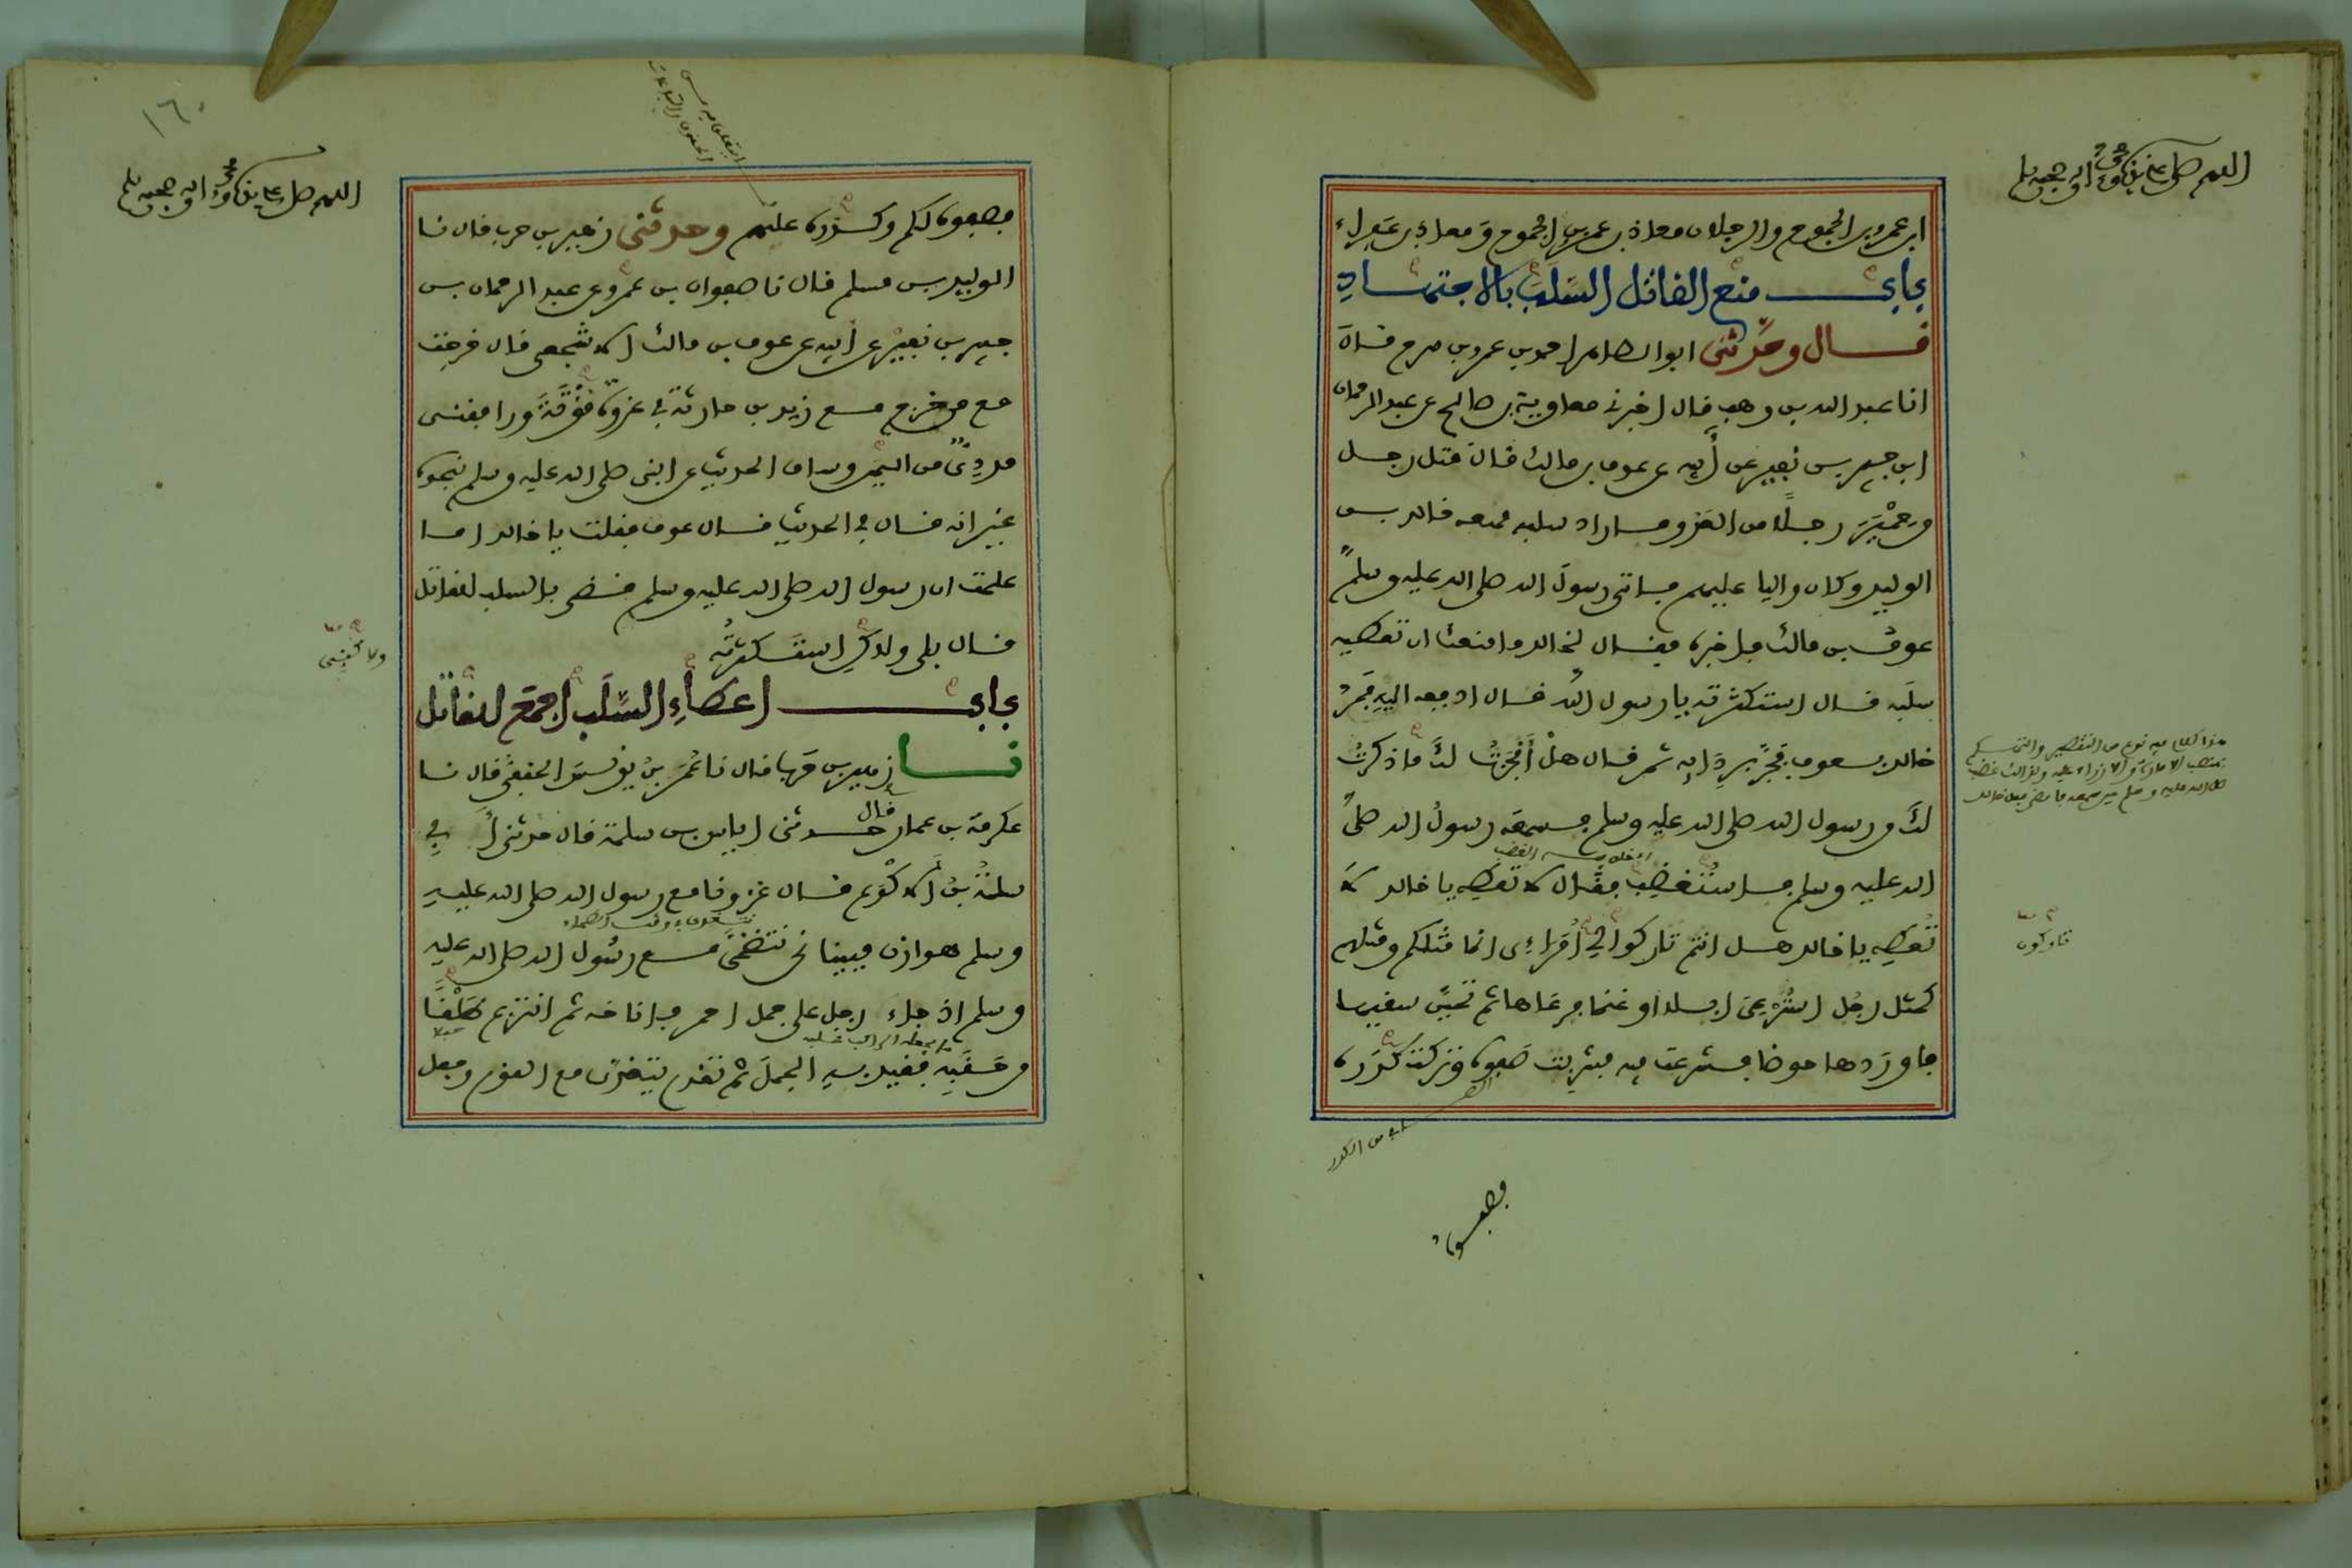 اللهم صل على نبيك محمد وءاله وصحبه وسلم
ابن عمرو بن الجموح والرجلان معاذ بن عمرو بن الجموح ومعاذ بن عفراء
باب منع القاتل السلب بالاجتهاد
قال وحدثني ابو الطاهر احمد بن عمرو بن سرح قال
انا عبد الله بن وهب قال اخبرني معاوية بن صالح عن عبد الرحمان
ابن جبير بن نفير عن أبيه عن عوف بن مالك قال قتل رجل
من حمير رجلا من العدو فاراد سلبه فمنعه خالد بن
الوليد وكان واليا عليهم فاتى رسول الله صلى الله عليه وسلم
عوف بن مالك فاخبره فقال لخالد ما منعك ان تعطيه
سلبه قال استكثرته يا رسول الله قال ادفعه اليه فمر
خالد بعوف فجر بردائه ثم قال هل أنجزت لك ما ذكرت
لك من رسول الله صلى الله عليه وسلم فسمعه رسول الله صلى
الله عليه وسلم فاستغضب فقال لا تعطه يا خالد لا
تعطه يا خالد هل انتم تاركوا لي أمراءي انما مثلكم ومثلهم
كمثل رجل استرعي ابلا او غنما فرعاها ثم تحين سقيها
فاوردها حوضا فشرعت فيه فشربت صفوه وتركت كدره
تاركون
فصفوه
١٦٠
اللهم صل على نبيك محمد وءاله وصحبه وسلم
فصفوه لكم وكدره عليهم وحدثني زهير بن حرب قال نا
الوليد بن مسلم قال نا صفوان بن عمرو عن عبد الرحمان بن
جبير بن نفير عن أبيه عن عوف بن مالك الاشجعي قال خرجت
مع من خرج مع زيد بن حارثة في غزوة مؤتة ورافقني
مددي من اليمن وساق الحديث عن النبي صلى الله عليه وسلم بنحوه
غير انه قال في الحديث قال عوف فقلت يا خالد اما
علمت ان رسول الله صلى الله عليه وسلم قضى بالسلب للقاتل
قال بلى ولكني استكثرته
باب اعطاء السلب اجمع للقاتل
نا زهير بن حرب قال نا عمر بن يونس الحنفي قال نا
عكرمة بن عمار قال حدثني اياس بن سلمة قال حدثني أبي
سلمة بن الاكوع قال غزونا مع رسول الله صلى الله عليه
وسلم هوازن فبينا نحن نتضحى مع رسول الله صلى الله عليه
وسلم اذ جاء رجل على جمل احمر فاناخه ثم انتزع طلقا
من حقبه فقيد به الجمل ثم تقدم يتغدى مع القوم وجعل